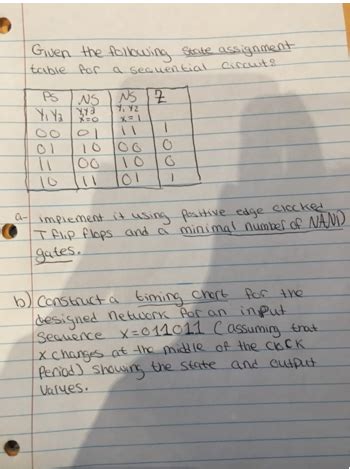 Given the following state assignment
table for a sequential circuit:
PS NS NS Z
Y1Y2 Y1Y2 Y1 Y2
x=0 x=1
00 01 11 1
01 10 00 0
11 00 10 0
10 11 01 1
a- implement it using positive edge clocked
T flip flops and a minimal number of NAND
gates.
b) Construct a timing chart for the
designed network for an input
sequence x=011011 (assuming that
x changes at the middle of the clock
Period) showing the state and output
values.